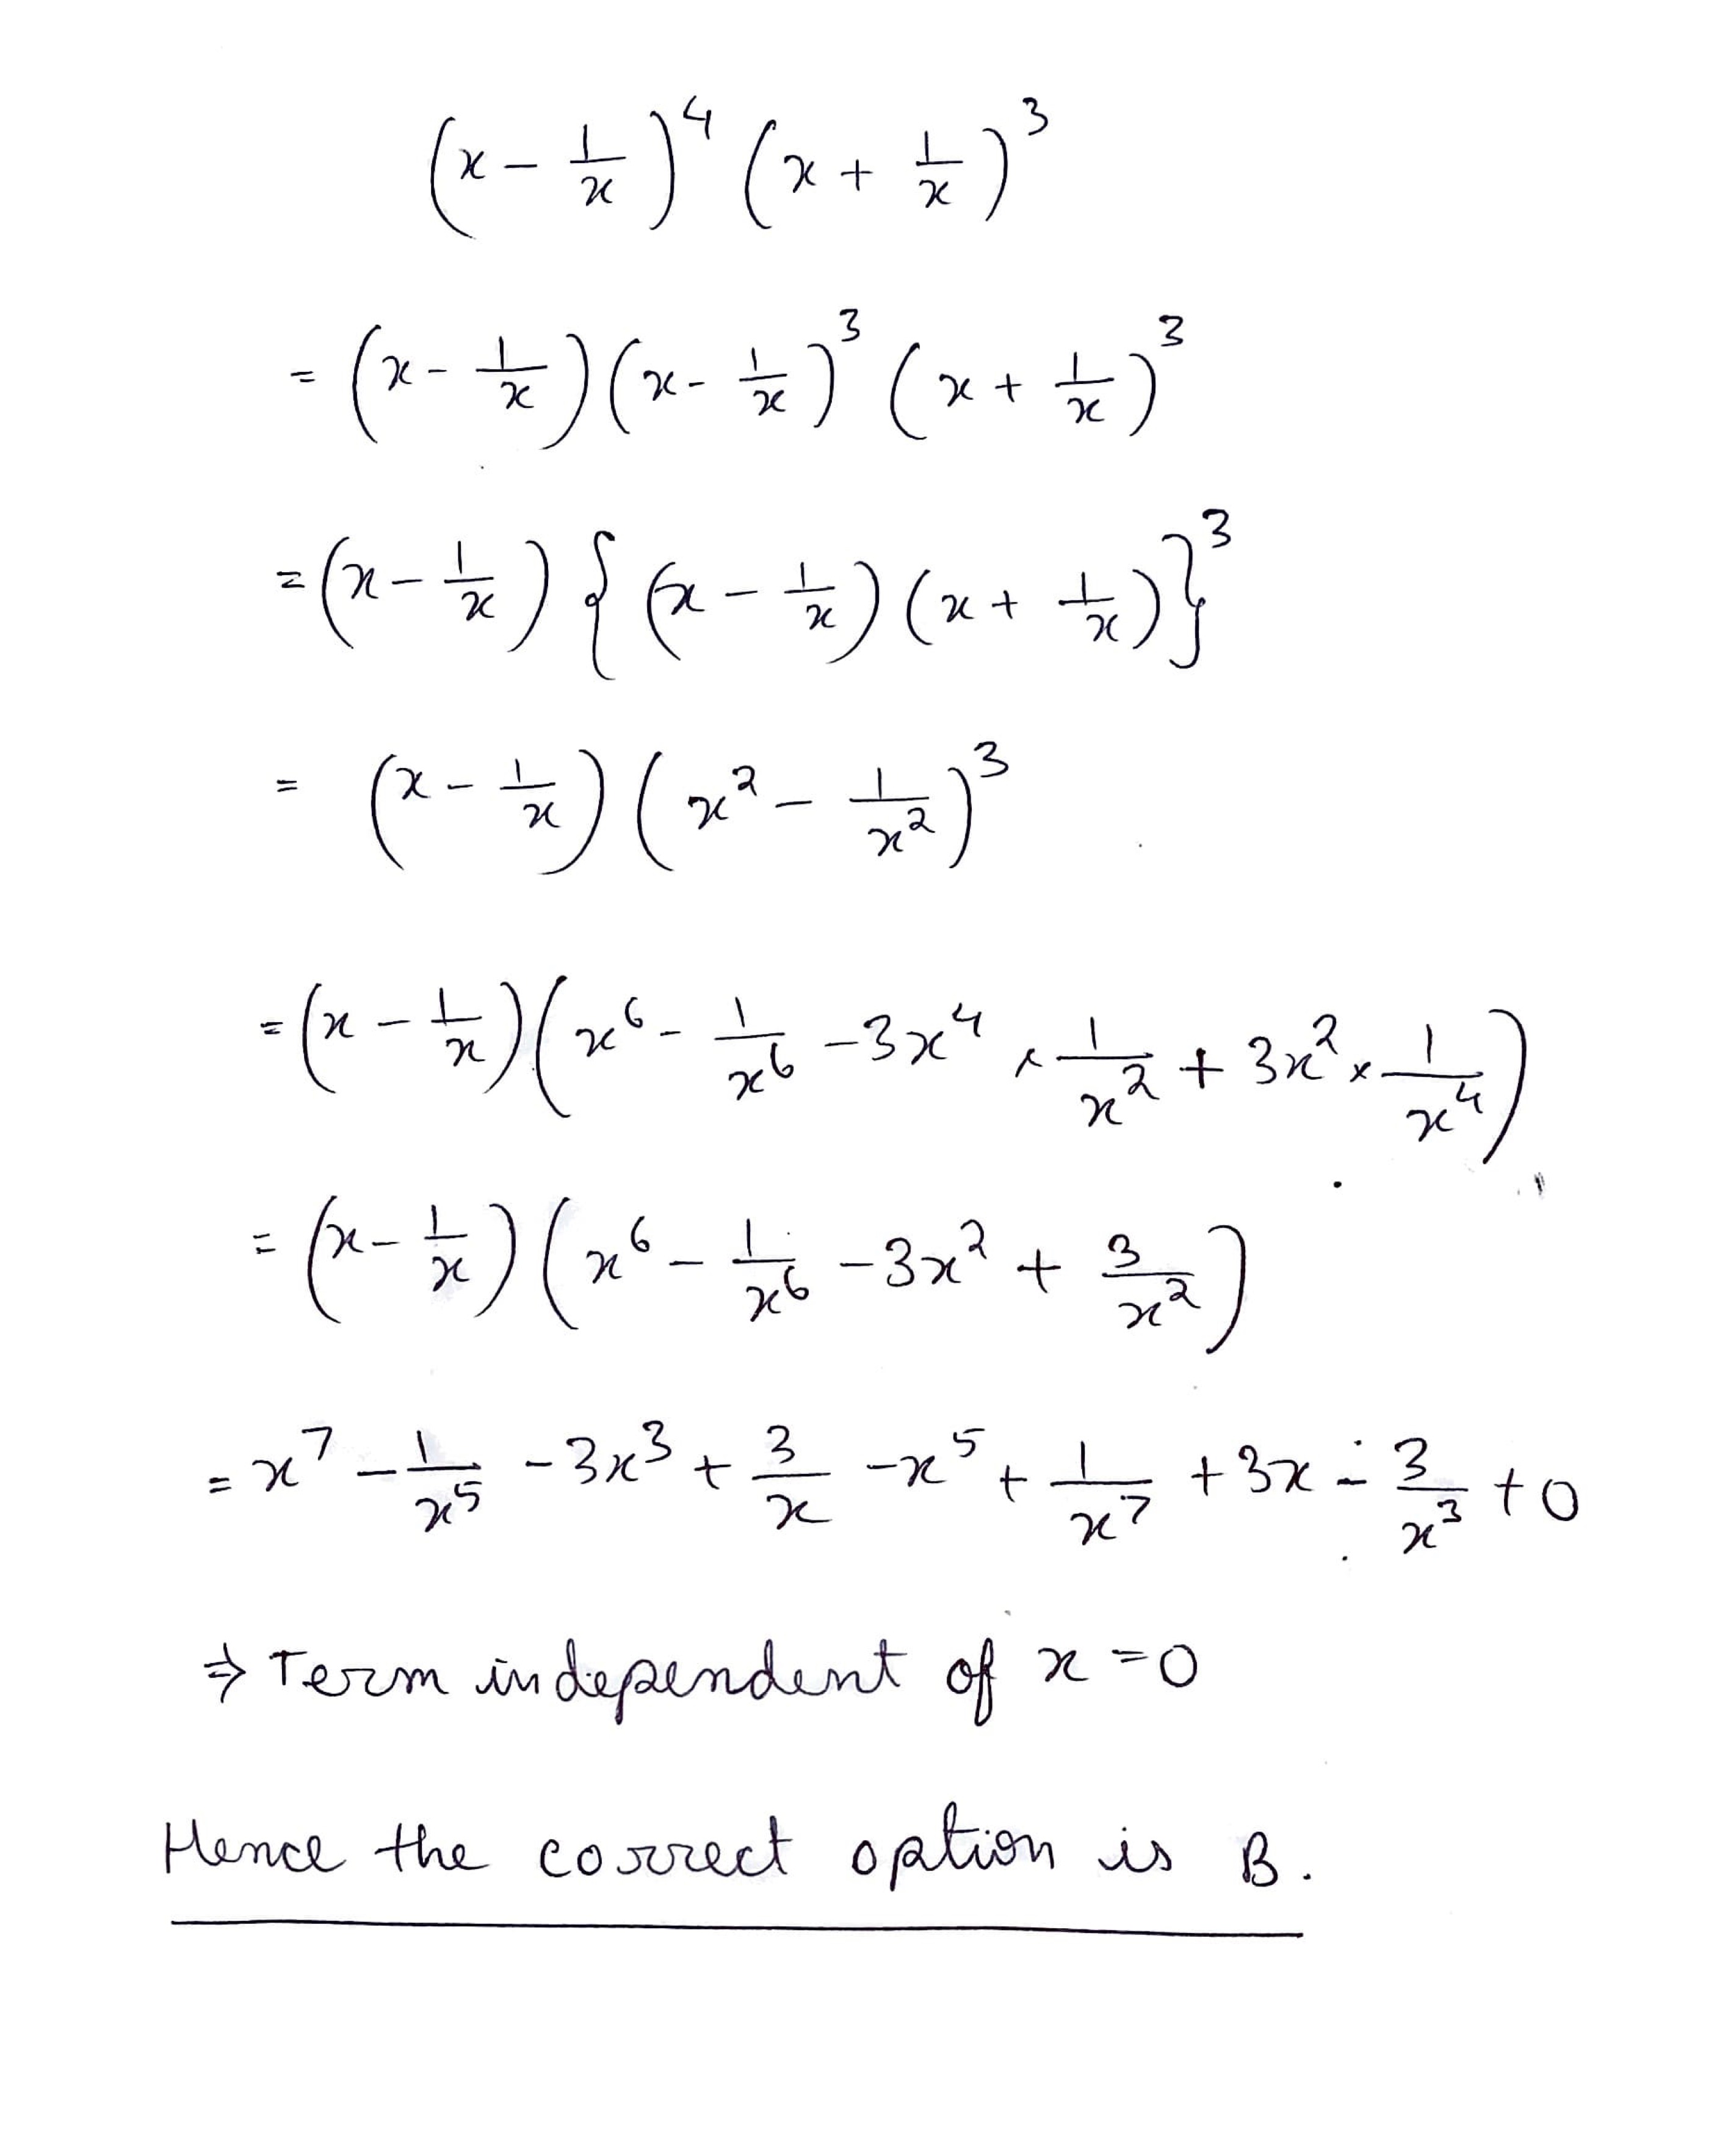 (x - 1/x)^4 (x + 1/x)^3
= (x - 1/x) (x - 1/x)^3 (x + 1/x)^3
= (x - 1/x) { (x - 1/x) (x + 1/x) }^3
= (x - 1/x) (x^2 - 1/x^2)^3
= (x - 1/x) (x^6 - 1/x^6 - 3x^4 × 1/x^2 + 3x^2 × 1/x^4)
= (x - 1/x) (x^6 - 1/x^6 - 3x^2 + 3/x^2)
= x^7 - 1/x^5 - 3x^3 + 3/x - x^5 + 1/x^7 + 3x - 3/x^3 + 0
⇒ Term independent of x = 0
Hence the correct option is B.